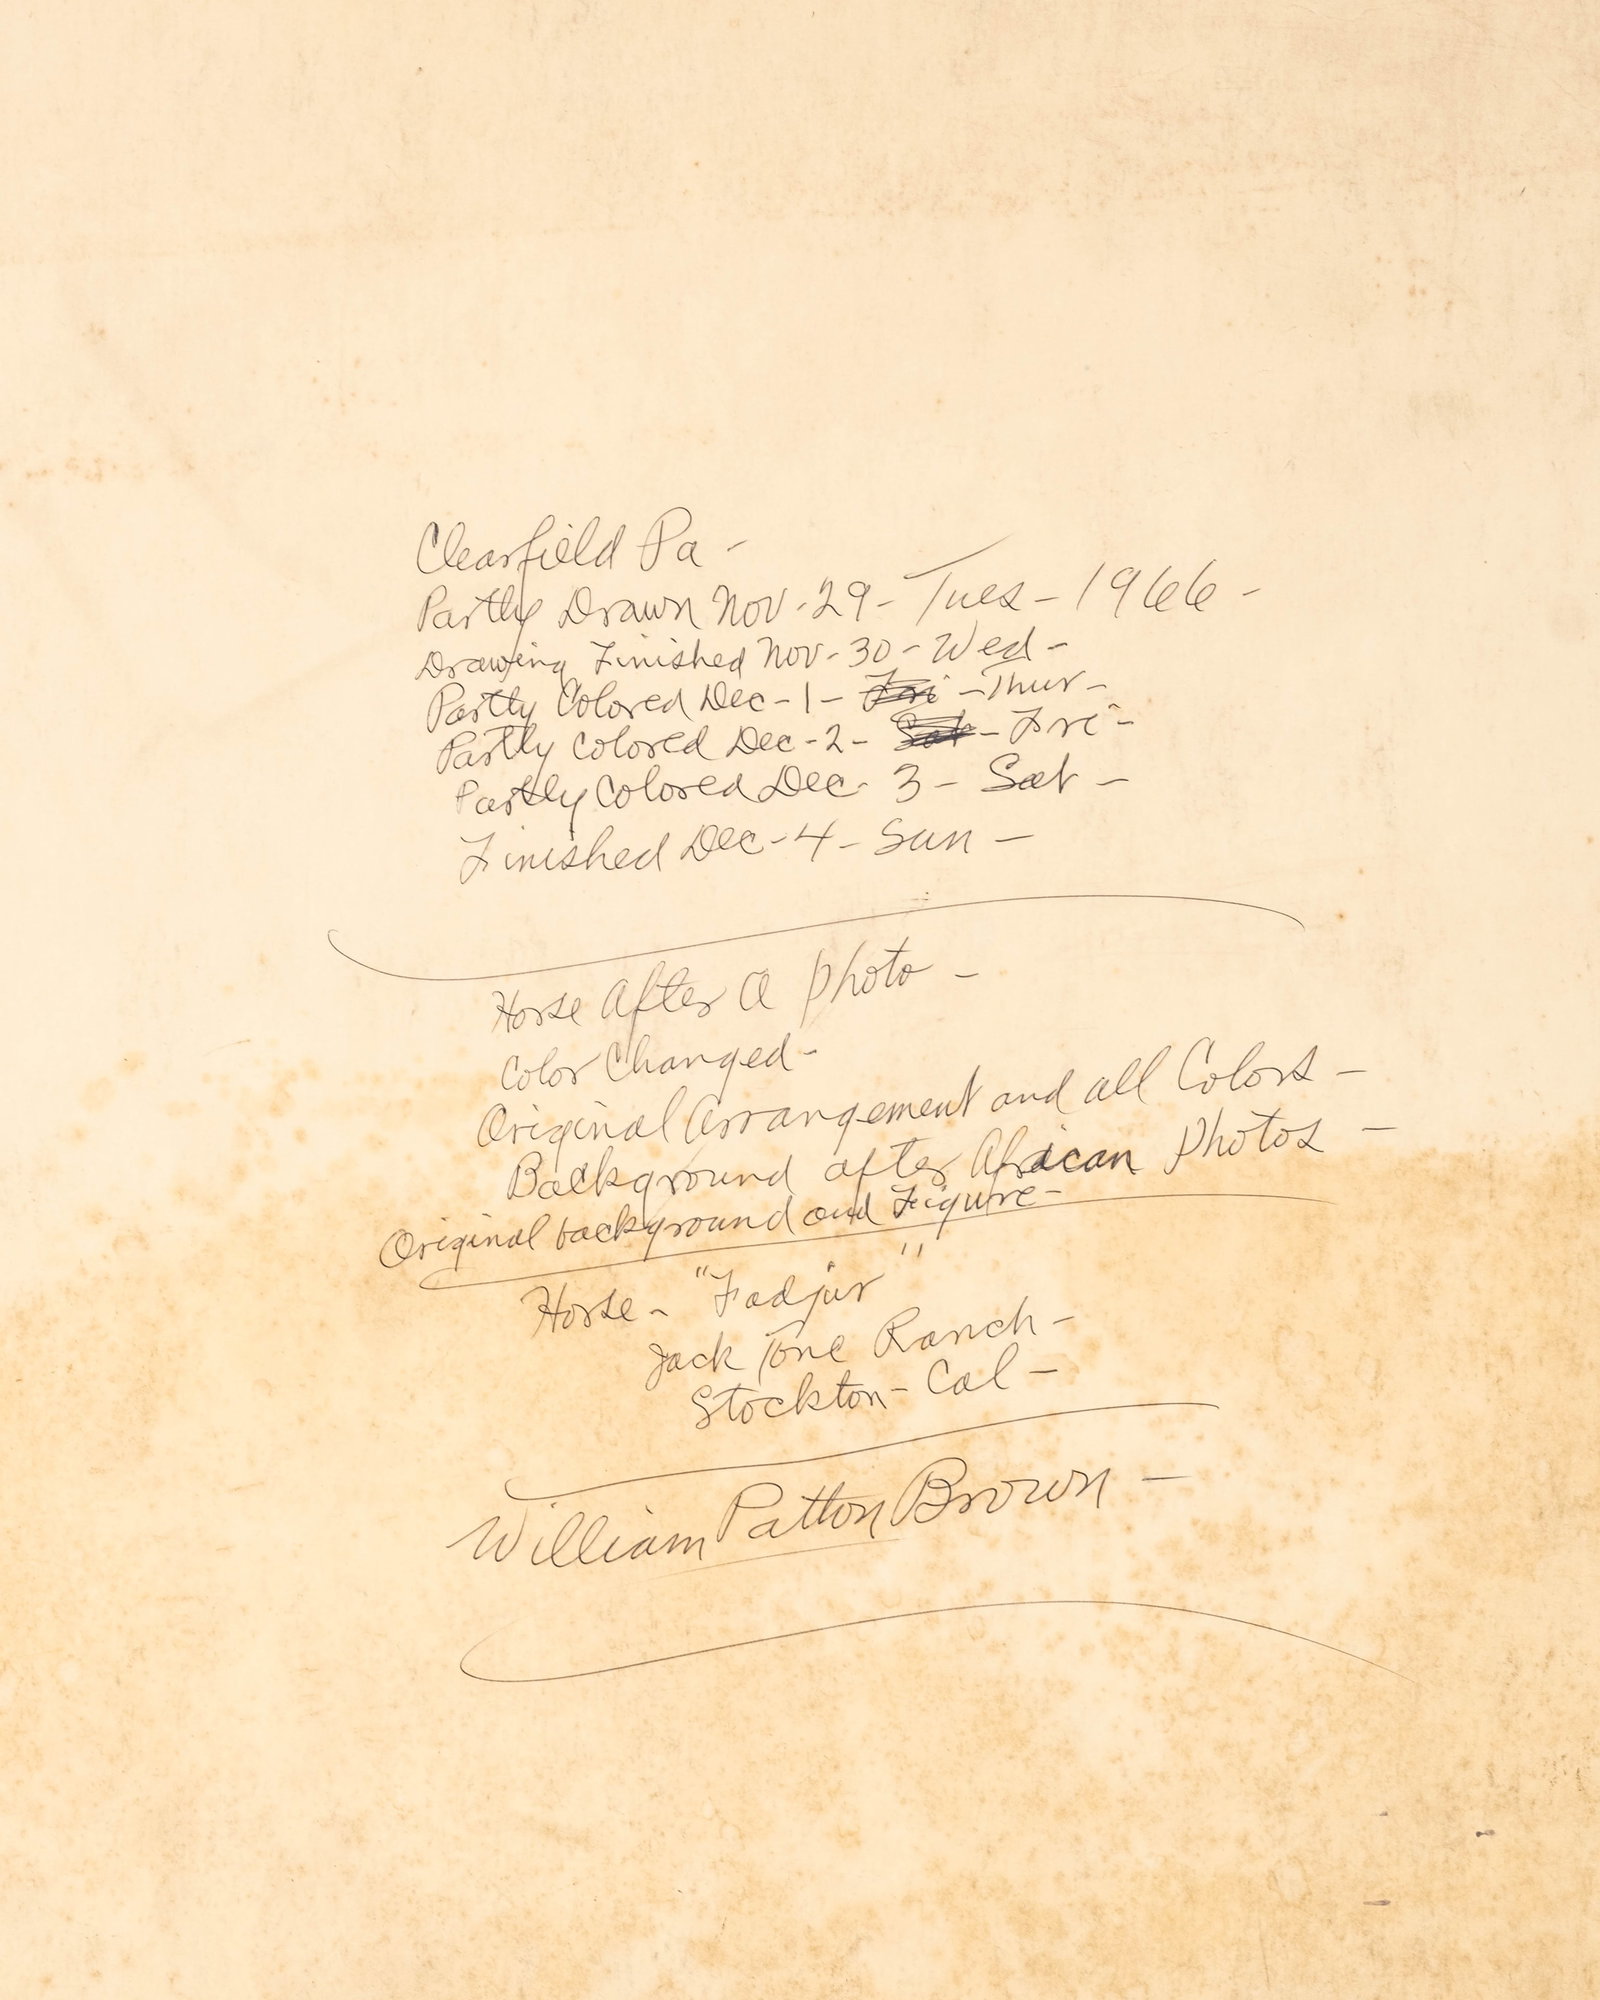 Clearfield Pa -
Partly Drawn Nov - 29 - Tues - 1966 -
Drawing Finished Nov - 30 - Wed -
Partly Colored Dec - 1 - Fri - Thur -
Partly Colored Dec - 2 - Sat - Fri -
Partly Colored Dec - 3 - Sat -
Finished Dec - 4 - Sun -
Horse After A Photo -
Color Changed -
Original Arrangement and all Colors -
Background after African Photos -
Original background and Figure -
Horse - "Fadjur"
Jack Tone Ranch -
Stockton - Cal -
William Patton Brown -